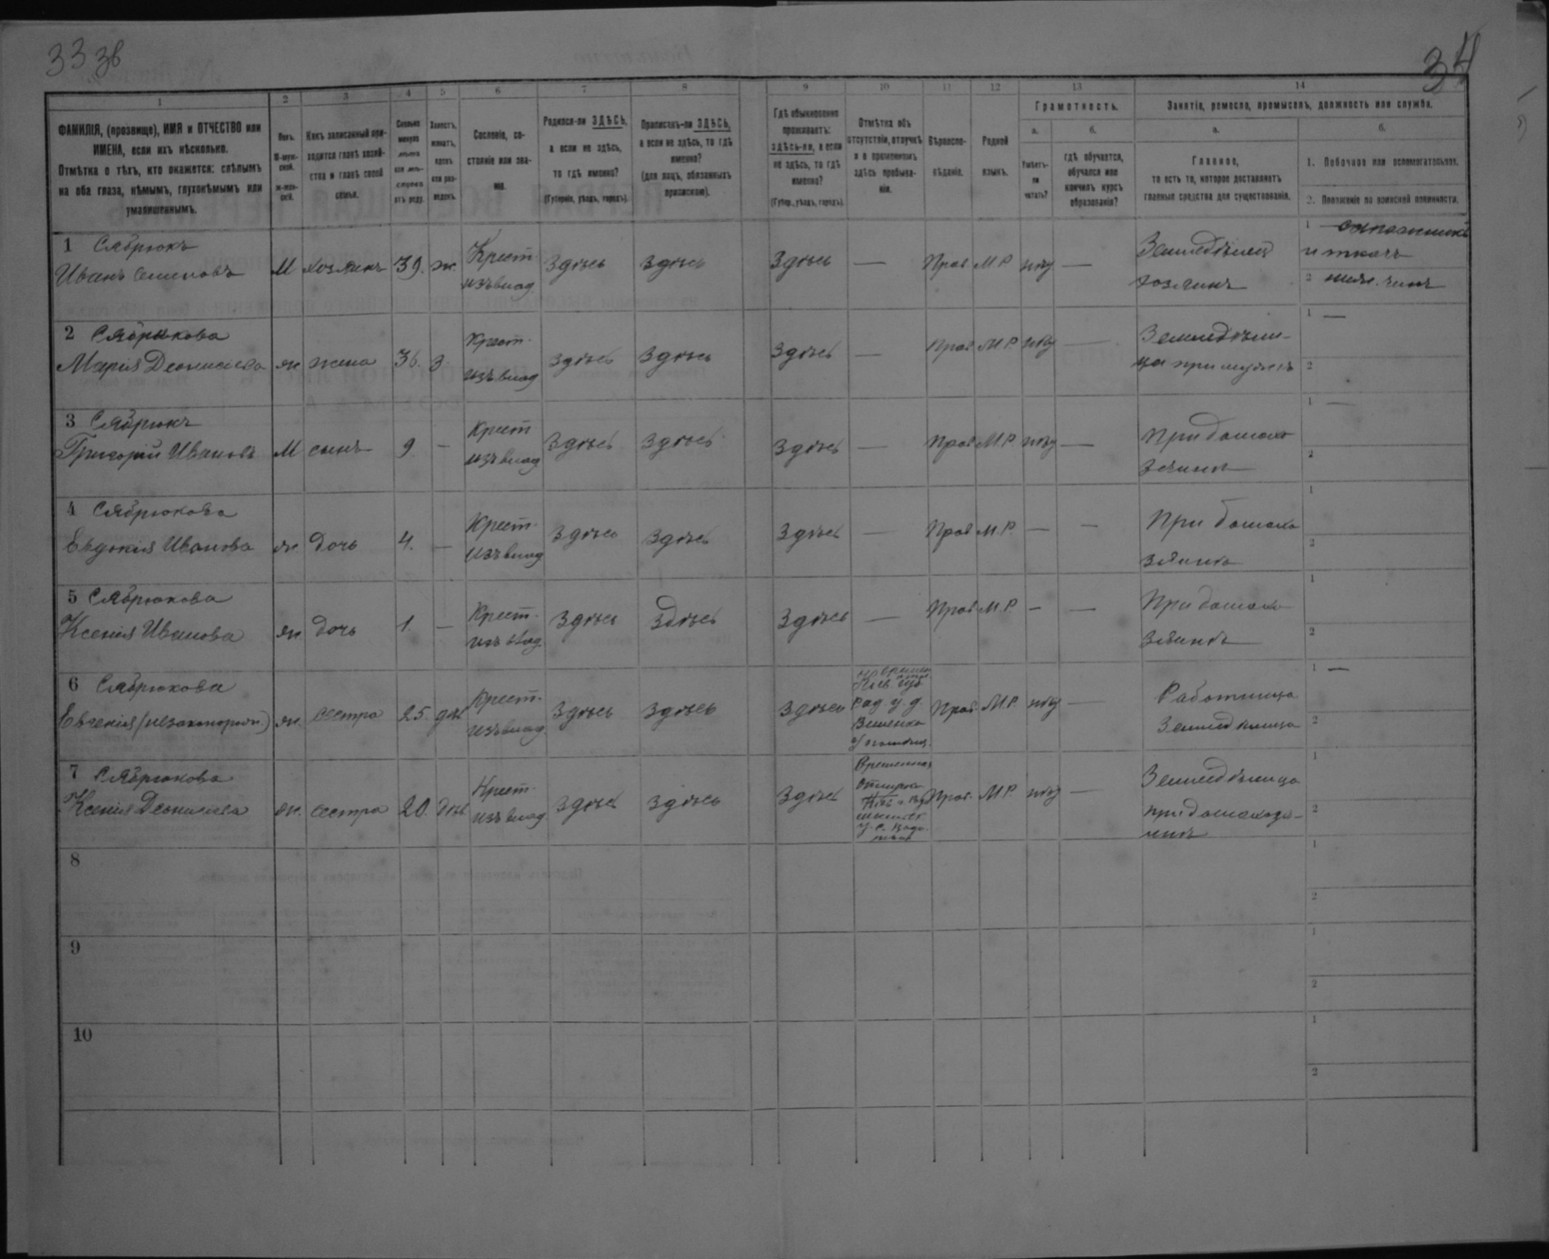 33 зв
34
1 2 3 4 5 6 7 8 9 10 11 12 13 14
ФАМИЛІЯ, (прозвище), ИМЯ и ОТЧЕСТВО или
ИМЕНА, если ихъ нѣсколько.
Отмѣтка о тѣхъ, кто окажется: слѣпымъ
на оба глаза, нѣмымъ, глухонѣмымъ или
умалишеннымъ.
Полъ.
М-муж-
ской.
Ж-жен-
скій.
Какъ записанный при-
ходится главѣ хозяй-
ства и главѣ своей
семьи.
Сколько
минуло
лѣтъ
или мѣ-
сяцевъ
отъ роду.
Холостъ,
женатъ,
вдовъ
или раз-
веденъ.
Сословіе, со-
стояніе или зва-
ніе.
Родился-ли ЗДѢСЬ,
а если не здѣсь,
то гдѣ именно?
(Губернія, уѣздъ, городъ).
Приписанъ-ли ЗДѢСЬ,
а если не здѣсь, то гдѣ
именно?
(для лицъ, обязанныхъ
припискою).
Гдѣ обыкновенно
проживаетъ:
здѣсь-ли, а если
не здѣсь, то гдѣ
именно?
(Губер., уѣздъ, городъ).
Отмѣтка объ
отсутствіи, отлучкѣ
и о временномъ
здѣсь пребыва-
ніи.
Вѣроиспо-
вѣданіе.
Родной
языкъ.
Грамотность.
а.
Умѣетъ-
ли
читать?
б.
гдѣ обучается,
обучался или
кончилъ курсъ
образованія?
Занятія, ремесло, промыселъ, должность или служба.
а.
Главное,
то есть то, которое доставляетъ
главныя средства для существованія.
б.
1. Побочное или вспомогательное.
2. Положеніе по воинской повинности.
1 Сябрюкъ
Иванъ Семеновъ М хозяинъ 39. ж. Крест. изъ влад здѣсь здѣсь здѣсь — Прав М.Р. нѣт —
Земледѣлец
хозяинъ
1
и ткачъ
2 ниж. чинъ
2 Сябрюкова
Марія Деонисіева ж. жена 36. з Крест. изъ влад здѣсь здѣсь здѣсь — Прав М.Р. нѣт —
Земледѣли-
ца при мужѣ
1 —
2
3 Сябрюкъ
Григорій Ивановъ М сынъ 9. — Крест изъ влад здѣсь здѣсь здѣсь — Прав М.Р. нѣт —
При домохо
зяинѣ
1 —
2
4 Сябрюкова
Евдокія Иванова ж. дочь 4. — Крест. изъ влад здѣсь здѣсь здѣсь — Прав М.Р. — —
При домохо
зяинѣ
1
2
5 Сябрюкова
Ксенія Иванова ж дочь 1 — Крест. изъ влад здѣсь здѣсь здѣсь — Прав М.Р. — —
При домохо
зяинѣ
1
2
6 Сябрюкова
Евгенія (незаконорож.) ж. сестра 25. дѣв Крест. изъ влад здѣсь здѣсь здѣсь Прав М.Р. нѣт —
Работница
Земледѣлица
1 —
2
7 Сябрюкова
Ксенія Деонисіева ж. сестра 20. дѣв Крест. изъ влад здѣсь здѣсь здѣсь Временно Прав. М.Р. нѣт —
Земледѣлица
при домохозя-
инѣ
1
2
8
1
2
9
1
2
10
1
2